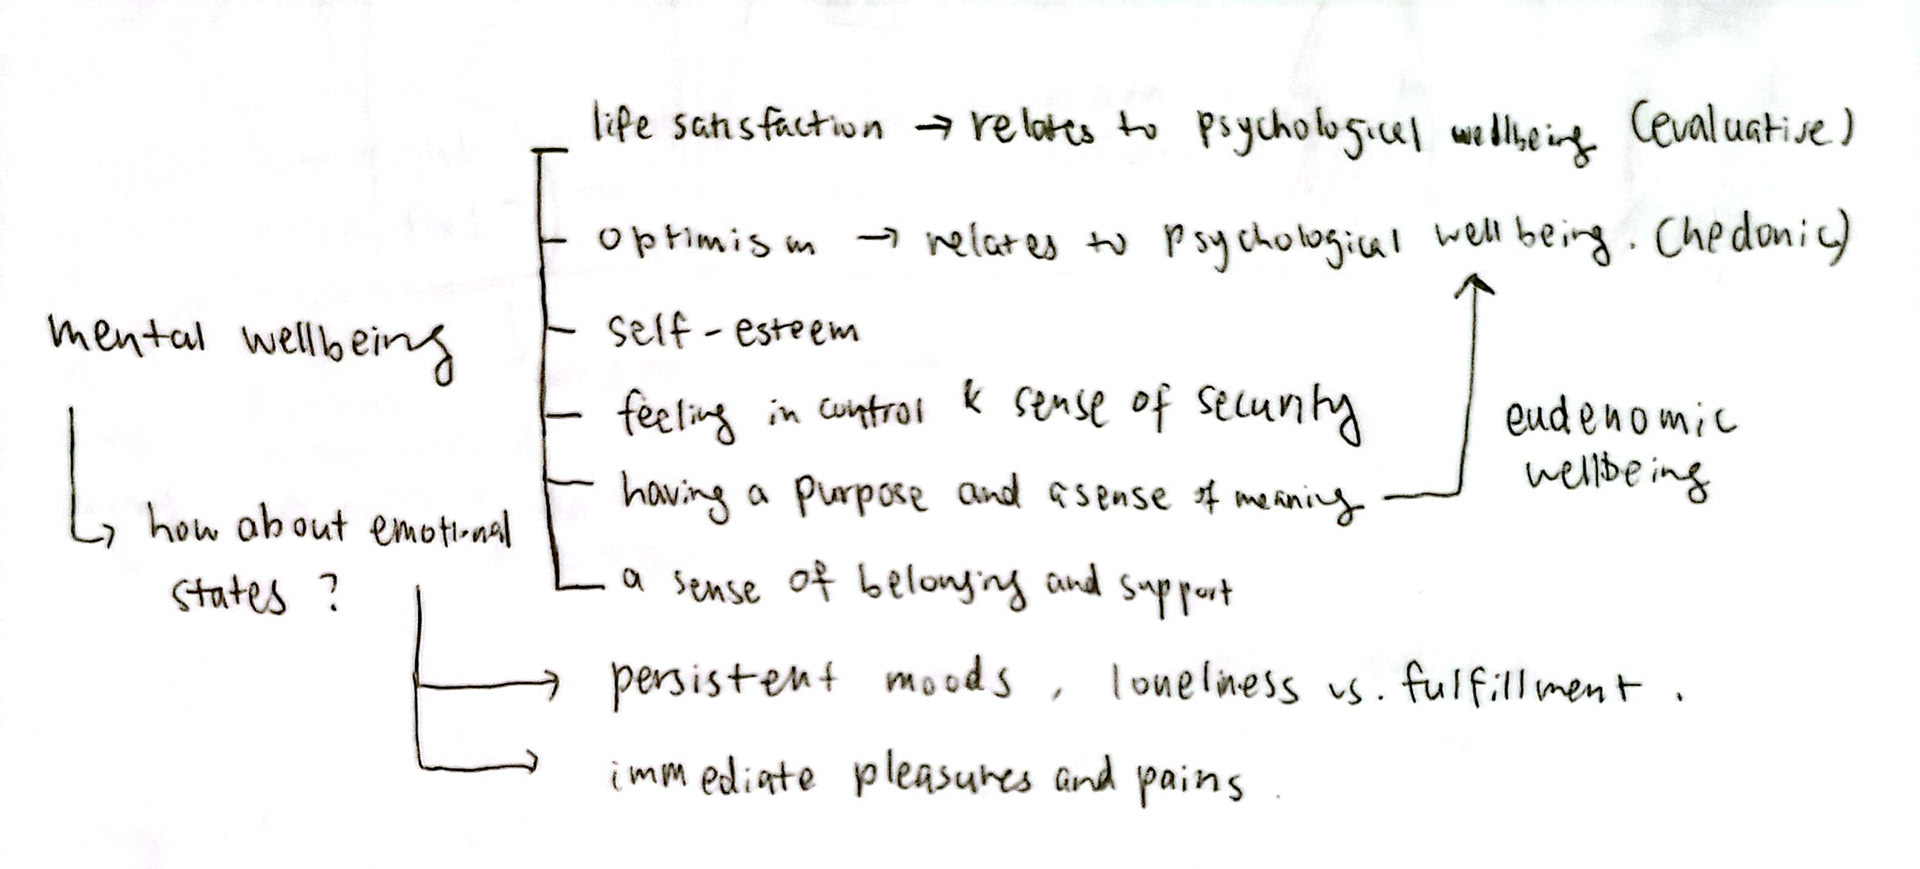 life satisfaction → relates to psychological wellbeing (evaluative)
optimism → relates to psychological wellbeing. (hedonic)
mental wellbeing
self-esteem
feeling in control & sense of security
eudenomic
wellbeing
having a purpose and a sense of meaning
how about emotional
states ?
a sense of belonging and support
persistent moods, loneliness vs. fulfillment.
immediate pleasures and pains.